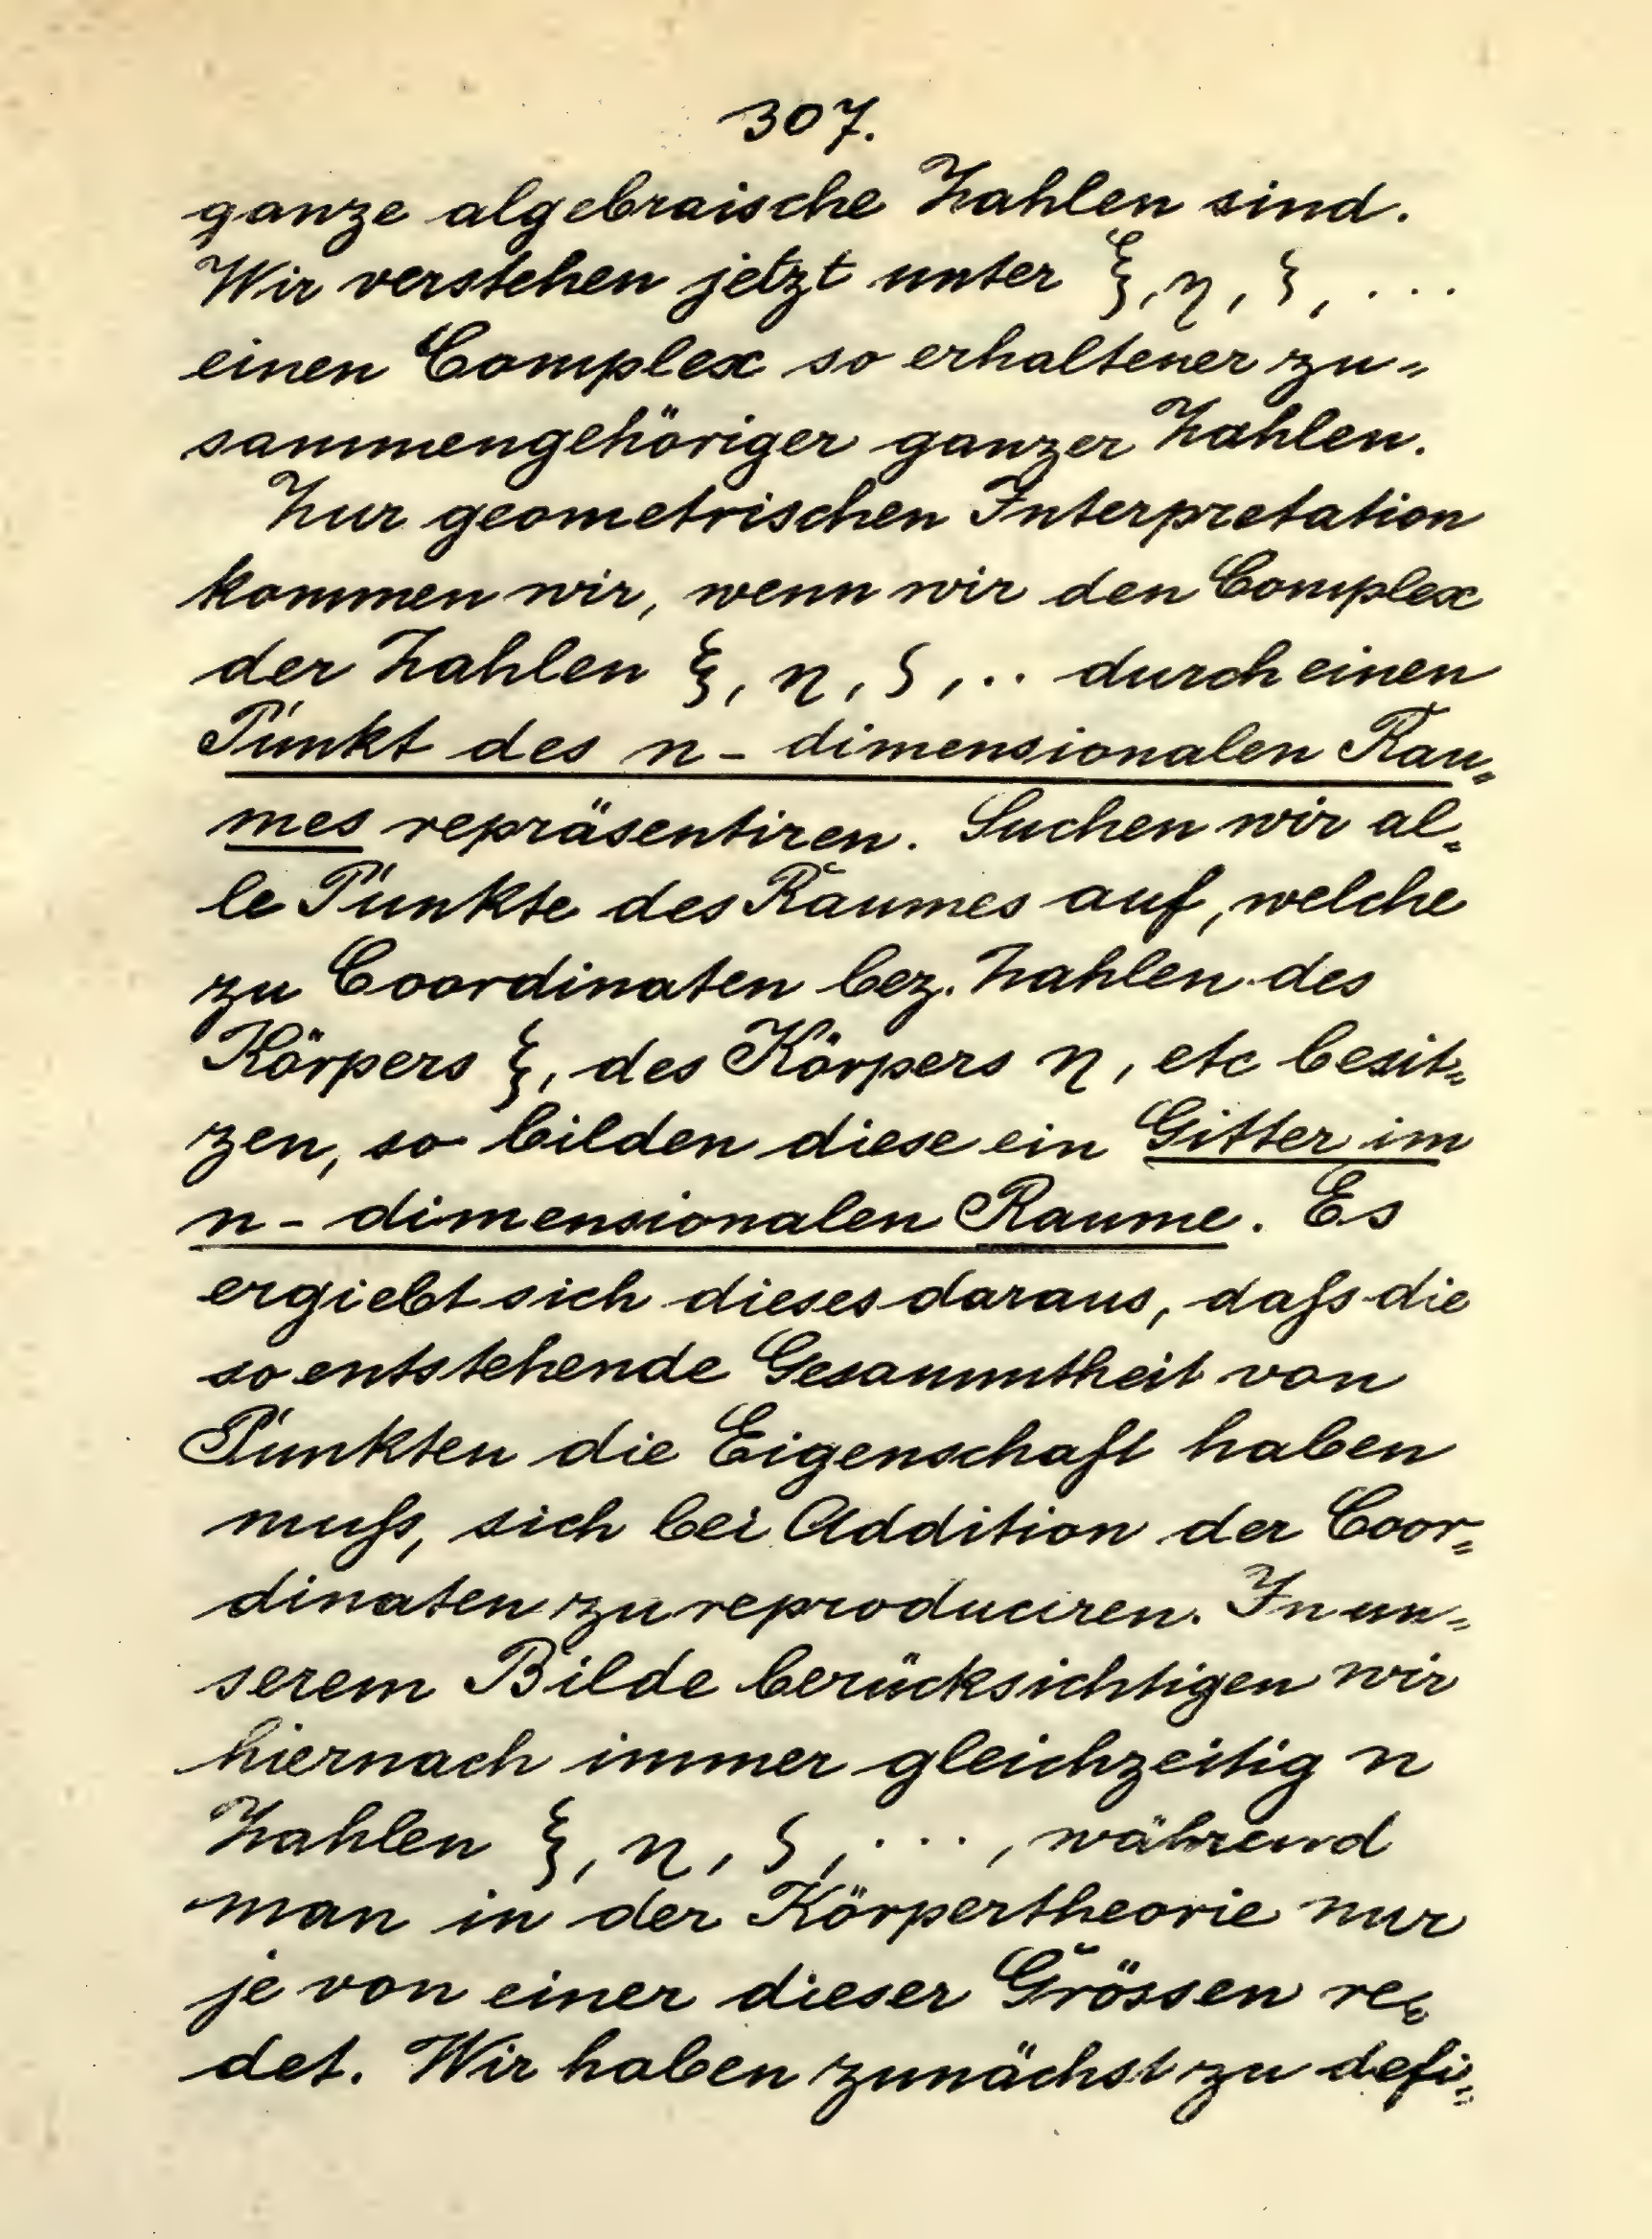 307.
ganze algebraische Zahlen sind.
Wir verstehen jetzt unter ξ, η, ζ, ...
einen Complex so erhaltener zu-
sammengehöriger ganzer Zahlen.
Zur geometrischen Interpretation
kommen wir, wenn wir den Complex
der Zahlen ξ, η, ζ, .. durch einen
Punkt des n-dimensionalen Rau-
mes repräsentiren. Suchen wir al-
le Punkte des Raumes auf, welche
zu Coordinaten bez. Zahlen des
Körpers ξ, des Körpers η, etc besit-
zen, so bilden diese ein Gitter im
n-dimensionalen Raume. Es
ergiebt sich dieses daraus, daſs die
so entstehende Gesammtheit von
Punkten die Eigenschaft haben
muſs, sich bei Addition der Coor-
dinaten zu reproduciren. In un-
serem Bilde berücksichtigen wir
hiernach immer gleichzeitig n
Zahlen ξ, η, ζ, ..., während
man in der Körpertheorie nur
je von einer dieser Grössen re-
det. Wir haben zunächst zu defi-